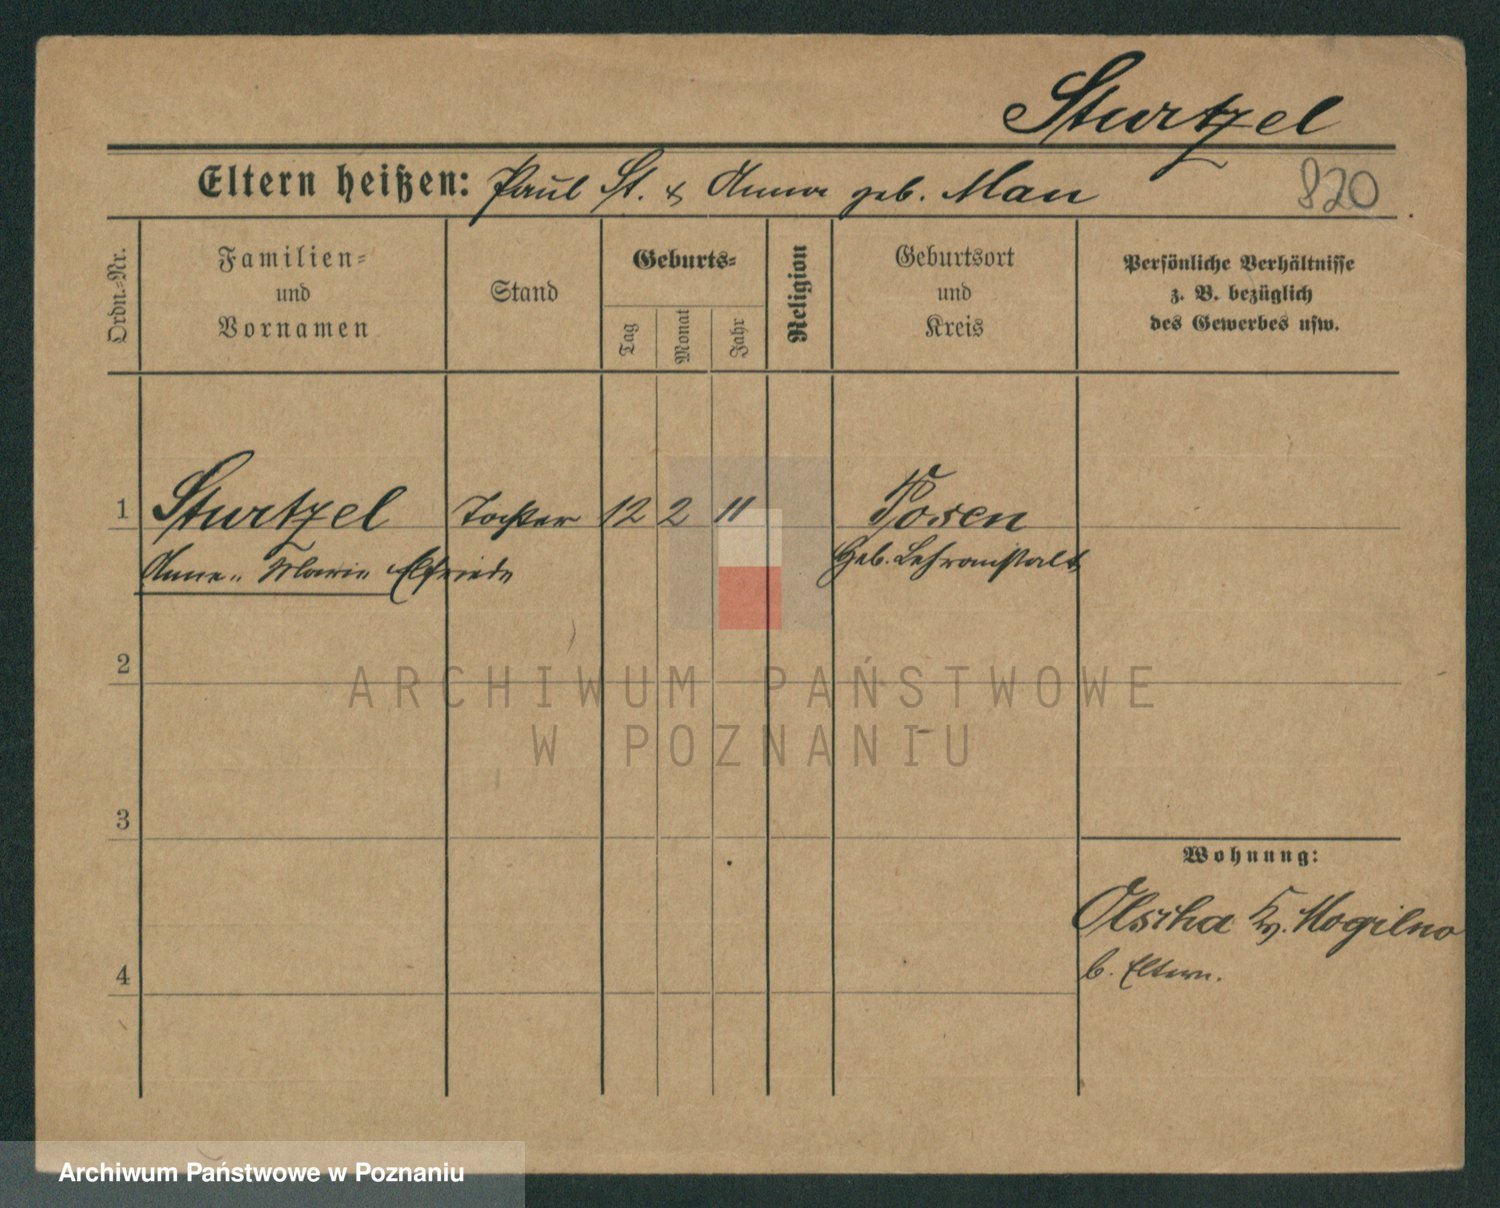 Sturtzel
Eltern heißen: Paul St. & Anna geb. Man
820
Ordn.-Nr.
Familien-
und
Vornamen
Stand
Geburts-
Tag
Monat
Jahr
Religion
Geburtsort
und
Kreis
Persönliche Verhältnisse
z. B. bezüglich
des Gewerbes usw.
1 Sturtzel Tochter 12 2 11 Posen
Anne-Marie Elfriede Geb. Lehranstalt
2
ARCHIWUM PAŃSTWOWE
W POZNANIU
3
Wohnung:
Olscha Kr. Mogilno
4
b. Eltern.
Archiwum Państwowe w Poznaniu